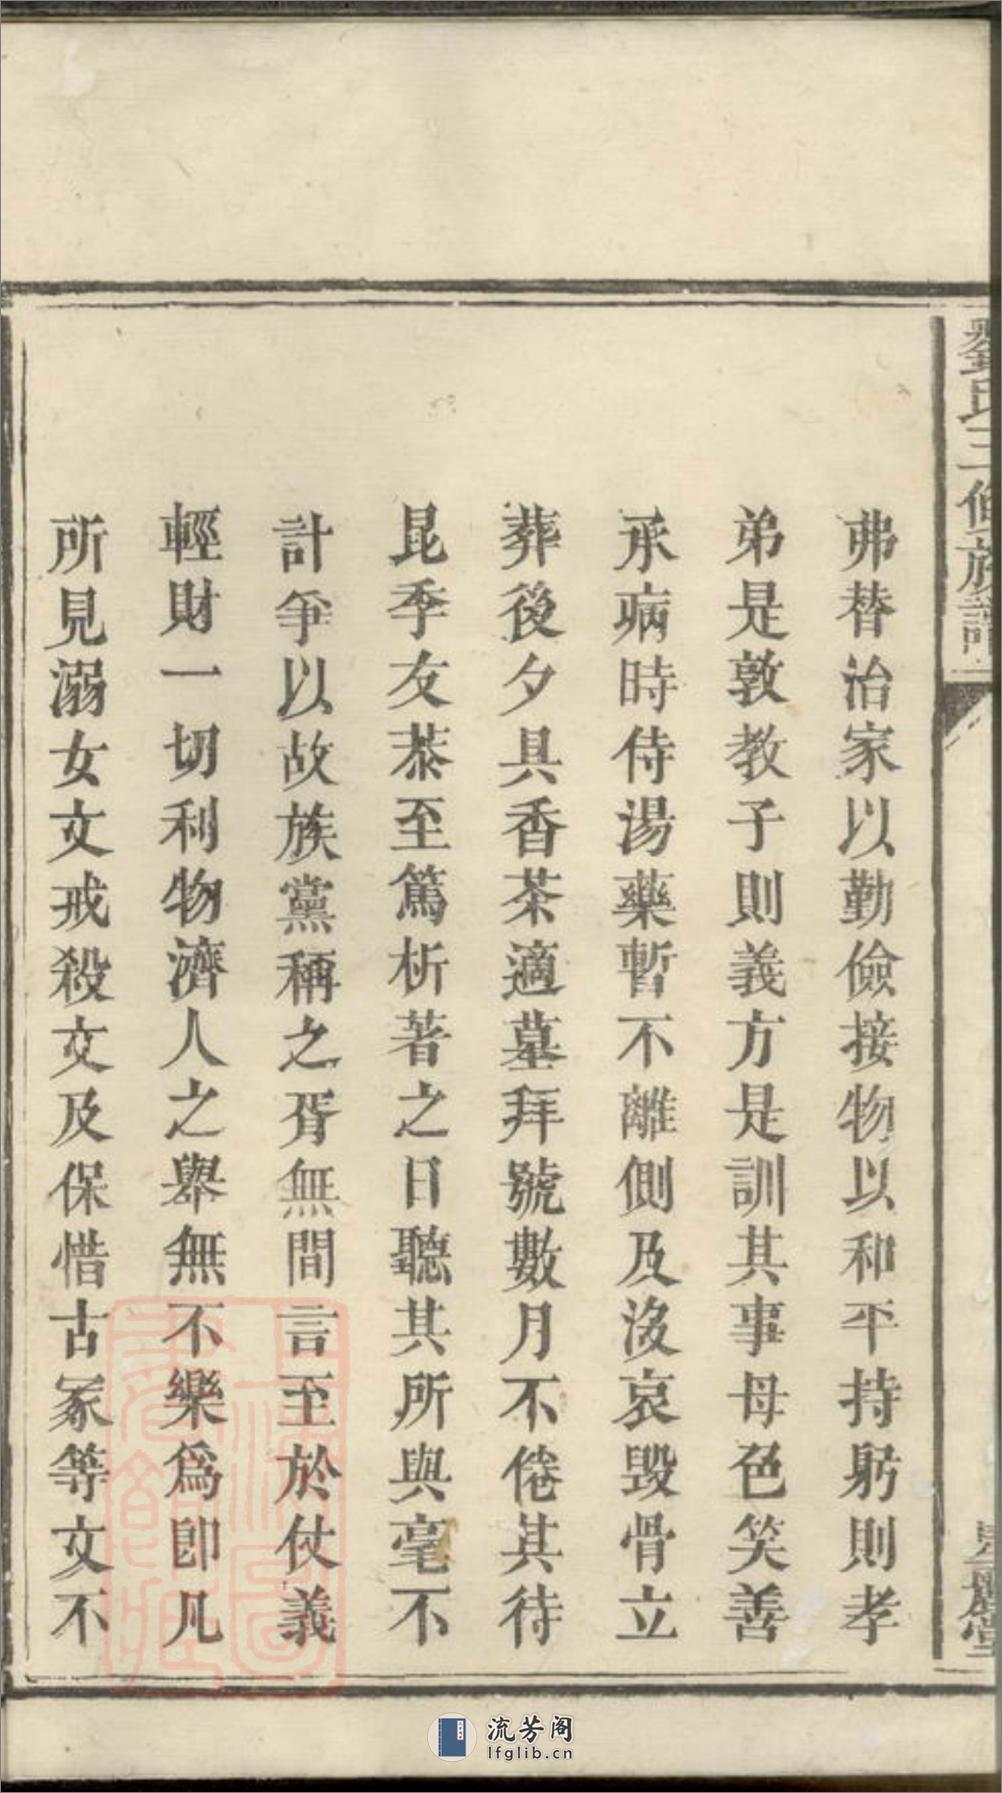 劉氏三修族譜
弗替治家以勤儉接物以和平持躬則孝
弟是敦教子則義方是訓其事母色笑善
承病時侍湯藥暫不離側及沒哀毀骨立
葬後夕具香茶適墓拜號數月不倦其待
昆季友恭至篤析著之日聽其所與毫不
計爭以故族黨稱之胥無間言至於仗義
輕財一切利物濟人之舉無不樂爲卽凡
所見溺女文戒殺文及保惜古冢等文不
流芳阁
lfglib.cn